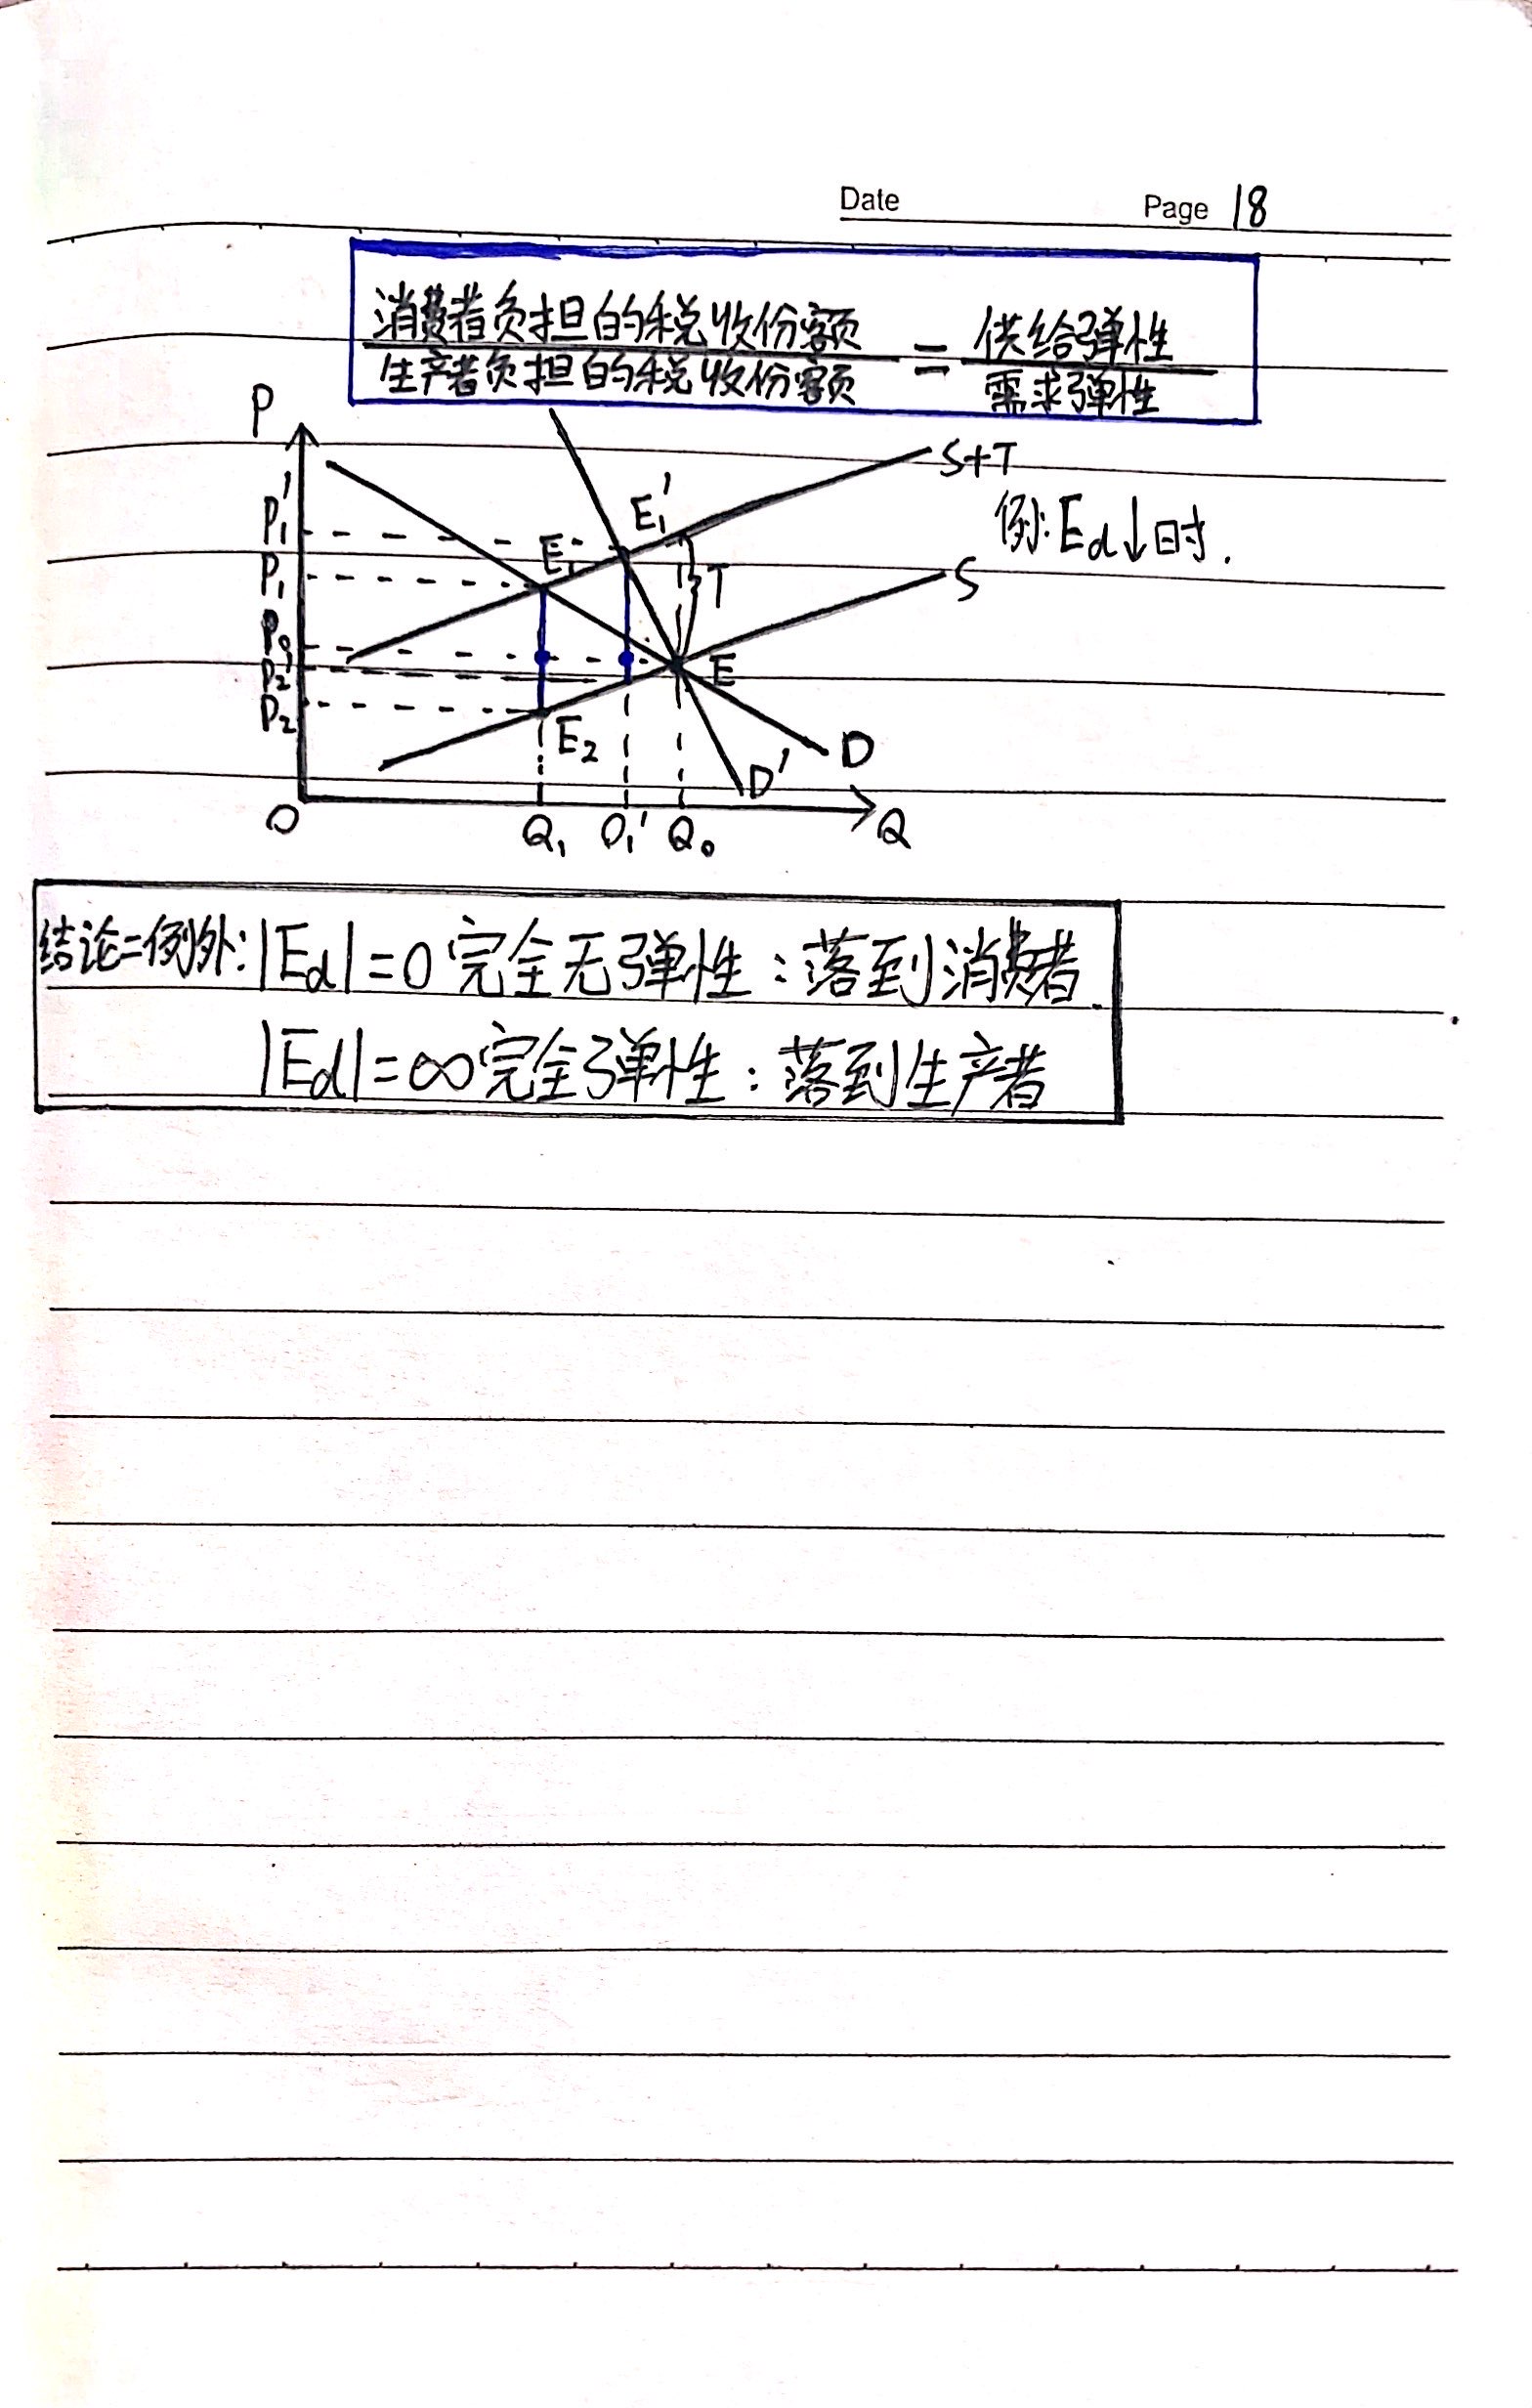 Date Page 18
消费者负担的税收份额 / 生产者负担的税收份额 = 供给弹性 / 需求弹性
P
S+T
P₁' E₁' 例:Ed↓时.
P₁ E₁ T S
P₀
P₂' E
P₂ E₂ D
D'
O Q₁ Q₁' Q₀ Q
结论二例外:|Ed|=0完全无弹性:落到消费者.
|Ed|=∞完全弹性:落到生产者